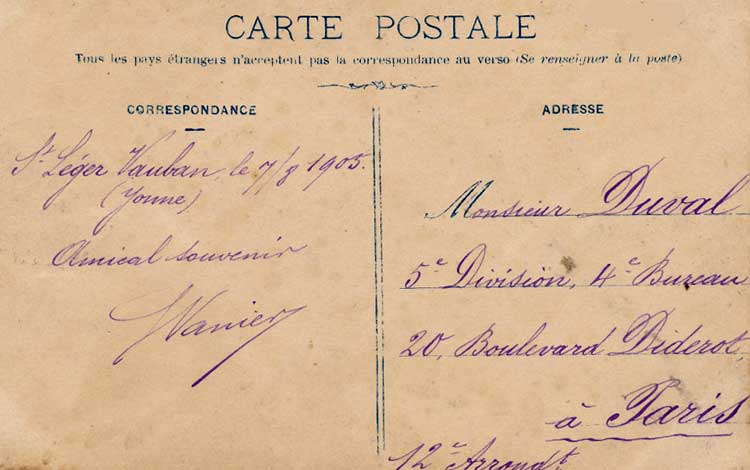 CARTE POSTALE
Tous les pays étrangers n'acceptent pas la correspondance au verso (Se renseigner à la poste)
CORRESPONDANCE
St Léger Vauban, le 7/8 1905.
(Yonne)
Amical souvenir
Vanier
ADRESSE
Monsieur Duval
5e Division, 4e Bureau
20, Boulevard Diderot,
à Paris
12e Arrondt